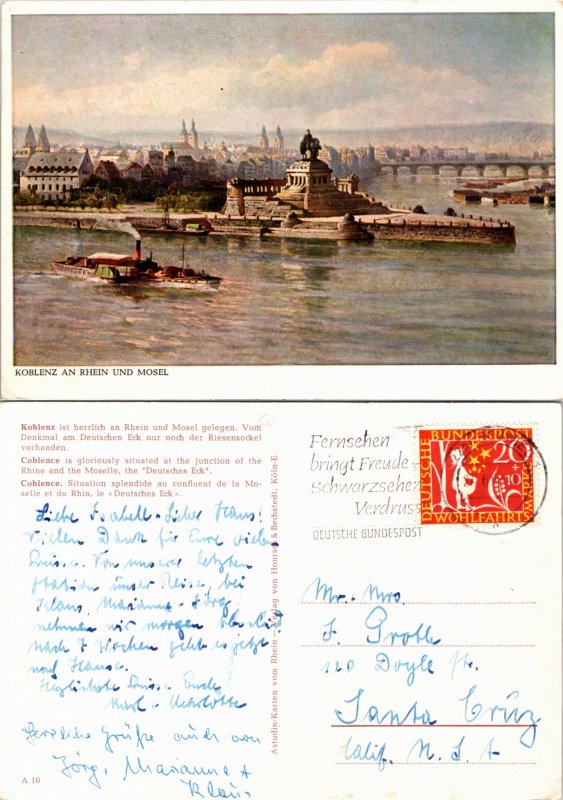 KOBLENZ AN RHEIN UND MOSEL
Koblenz ist herrlich an Rhein und Mosel gelegen. Vom
Denkmal am Deutschen Eck nur noch der Riesensockel
vorhanden.
Coblence is gloriously situated at the junction of the
Rhine and the Moselle, the "Deutsches Eck".
Coblence. Situation splendide au confluent de la Mo-
selle et du Rhin, le «Deutsches Eck».
Liebe Isabell - Lieber Hans!
Vielen Dank für Eure vielen
Grüsse. Von unserer letzten
Station unser Reise, bei
Klaus, Marianne + Jörg
nehmen wir morgen Abschied
nach 7 Wochen geht es jetzt
nach Hause.
Herzlichste Grüsse Euch
Karl + Charlotte
Herzliche Grüße auch von
Jörg, Marianne +
Klaus
A 10
Astudin-Karten vom Rhein — Verlag von Hoursch & Bechstedt, Köln-E.
Fernsehen
bringt Freude -
Schwarzsehen
Verdruss
DEUTSCHE BUNDESPOST
DEUTSCHE BUNDESPOST
20
+10
WOHLFAHRTSMARKE
Mr. + Mrs.
F. Groth
120 Doyle Str.
Santa Cruz
Calif. U.S.A